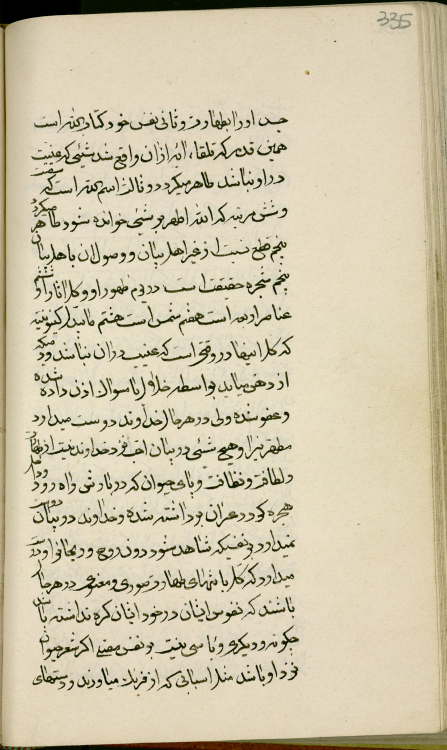 335
جسد اورا بطهارت و ثانی نفس خود کتاب الله است
همین قدر که تلقاء ایه ازان واقع شد شیئی که عینیت
در او نباشد طاهر میگردد و ثالث اسم الله است که سفت
و شش مرتبه که الله اطهر بر شیئی خوانده شود طاهر میگردد
پنجم قطع نسبت از غیر اهل بیان و وصول ان باهل بیان
پنجم شجره حقیقت است در یوم ظهور او و کل اثار او ششم
عناصر اربعه است هفتم شمس است هشتم ما یبدل کینونیته
که کل اینها در وقتی است که عینیت دران نباشد و
از دهن میاید بواسطه خلال یا سواک اذن داده شده
و عفو شده ولی در هر حال خداوند دوست میدارد
مطهر را و هیچ شیئی در بیان احب نزد خداوند نیست از طهارت
و لطافت و نظافت و پای حیوان که در بارش راه رود
هجره کرد در ان برداشته شده و خداوند در بیان دوست
نمیدارد بر نفسیکه شاهد شود دون روح و ریحان را و دوست
میدارد که کل با منتهای طهارت صوری و معنوی در هر حال
باشند که نفوس ایشان در خود ایشان کره نداشته باشد
چگونه و دیگری و باسی نیست بر نفس مصلی اگر شعر حیوان
نزد او باشد مثل اسبابی که از فرنک میاورند و دستهای